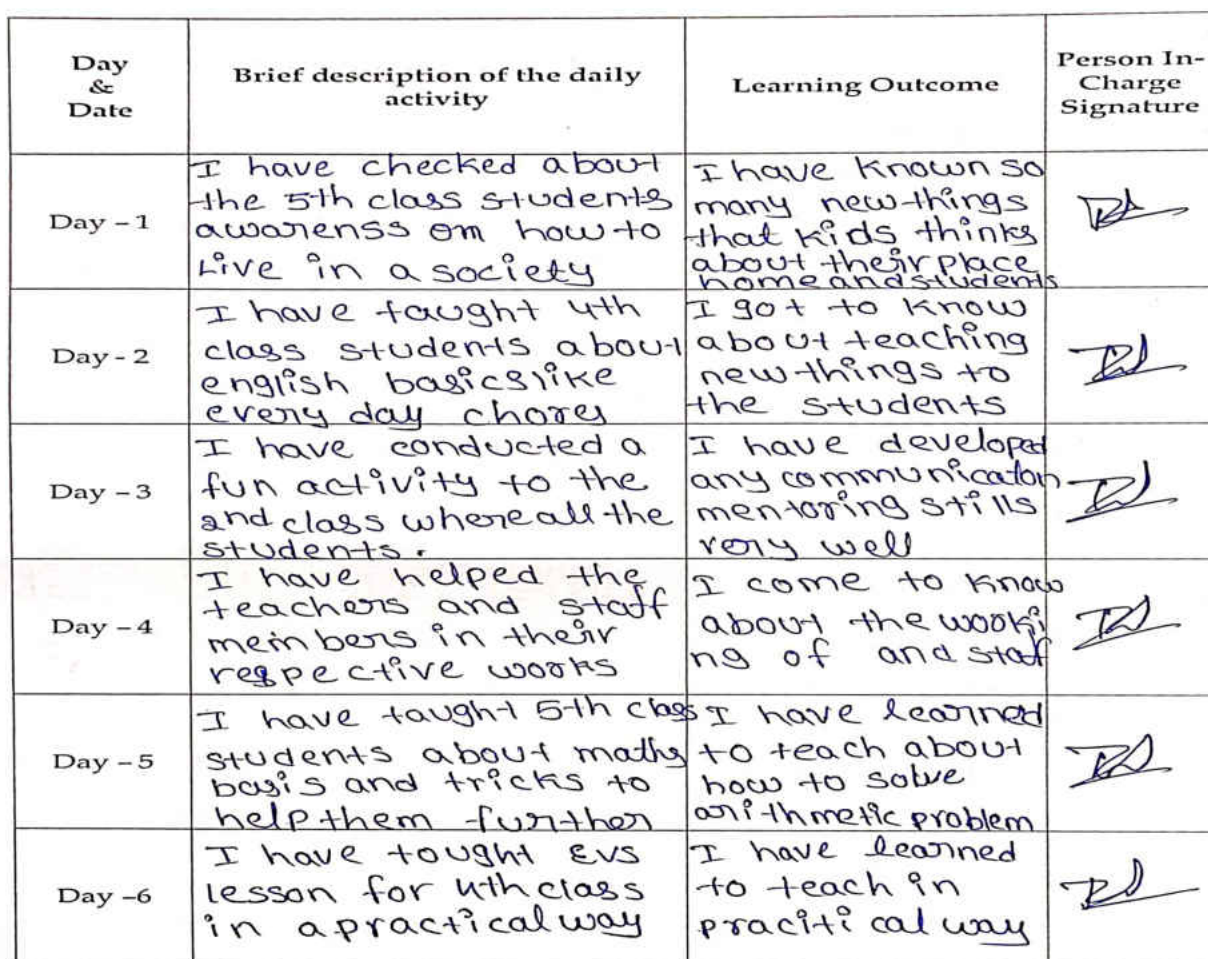 Day
&
Date
Brief description of the daily
activity
Learning Outcome
Person In-
Charge
Signature
Day – 1
I have checked about
the 5th class students
awarenss om how to
Live in a society
I have known so
many new things
that kids thinks
about their place
home and students
Day - 2
I have taught 4th
class students about
english basics like
every day chores
I got to know
about teaching
new things to
the students
Day – 3
I have conducted a
fun activity to the
2nd class where all the
students.
I have developed
any communicaton
mentoring stills
very well
Day – 4
I have helped the
teachers and staff
members in their
respective works
I come to know
about the wooki
ng of and staf
Day – 5
I have taught 5th class
students about maths
basis and tricks to
help them further
I have learned
to teach about
how to solve
arithmetic problem
Day –6
I have tought EVS
lesson for 4th class
in a practical way
I have learned
to teach in
praciti cal way